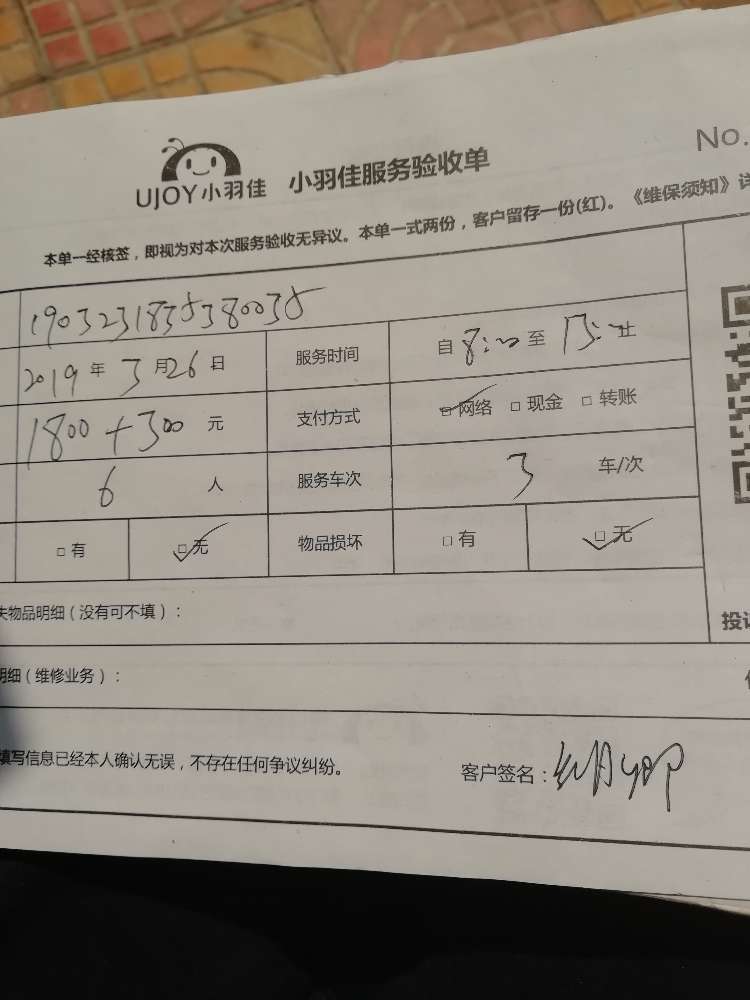 UJOY小羽佳 小羽佳服务验收单 No.
本单一经核签，即视为对本次服务验收无异议。本单一式两份，客户留存一份(红)。《维保须知》详
1903231835380035
2019年3月26日 服务时间 自8:00至13:止
1800+300元 支付方式 ☑网络 □现金 □转账
6人 服务车次 3车/次
□有 ☑无 物品损坏 □有 ☑无
失物品明细（没有可不填）：
投诉
明细（维修业务）：
填写信息已经本人确认无误，不存在任何争议纠纷。
客户签名：